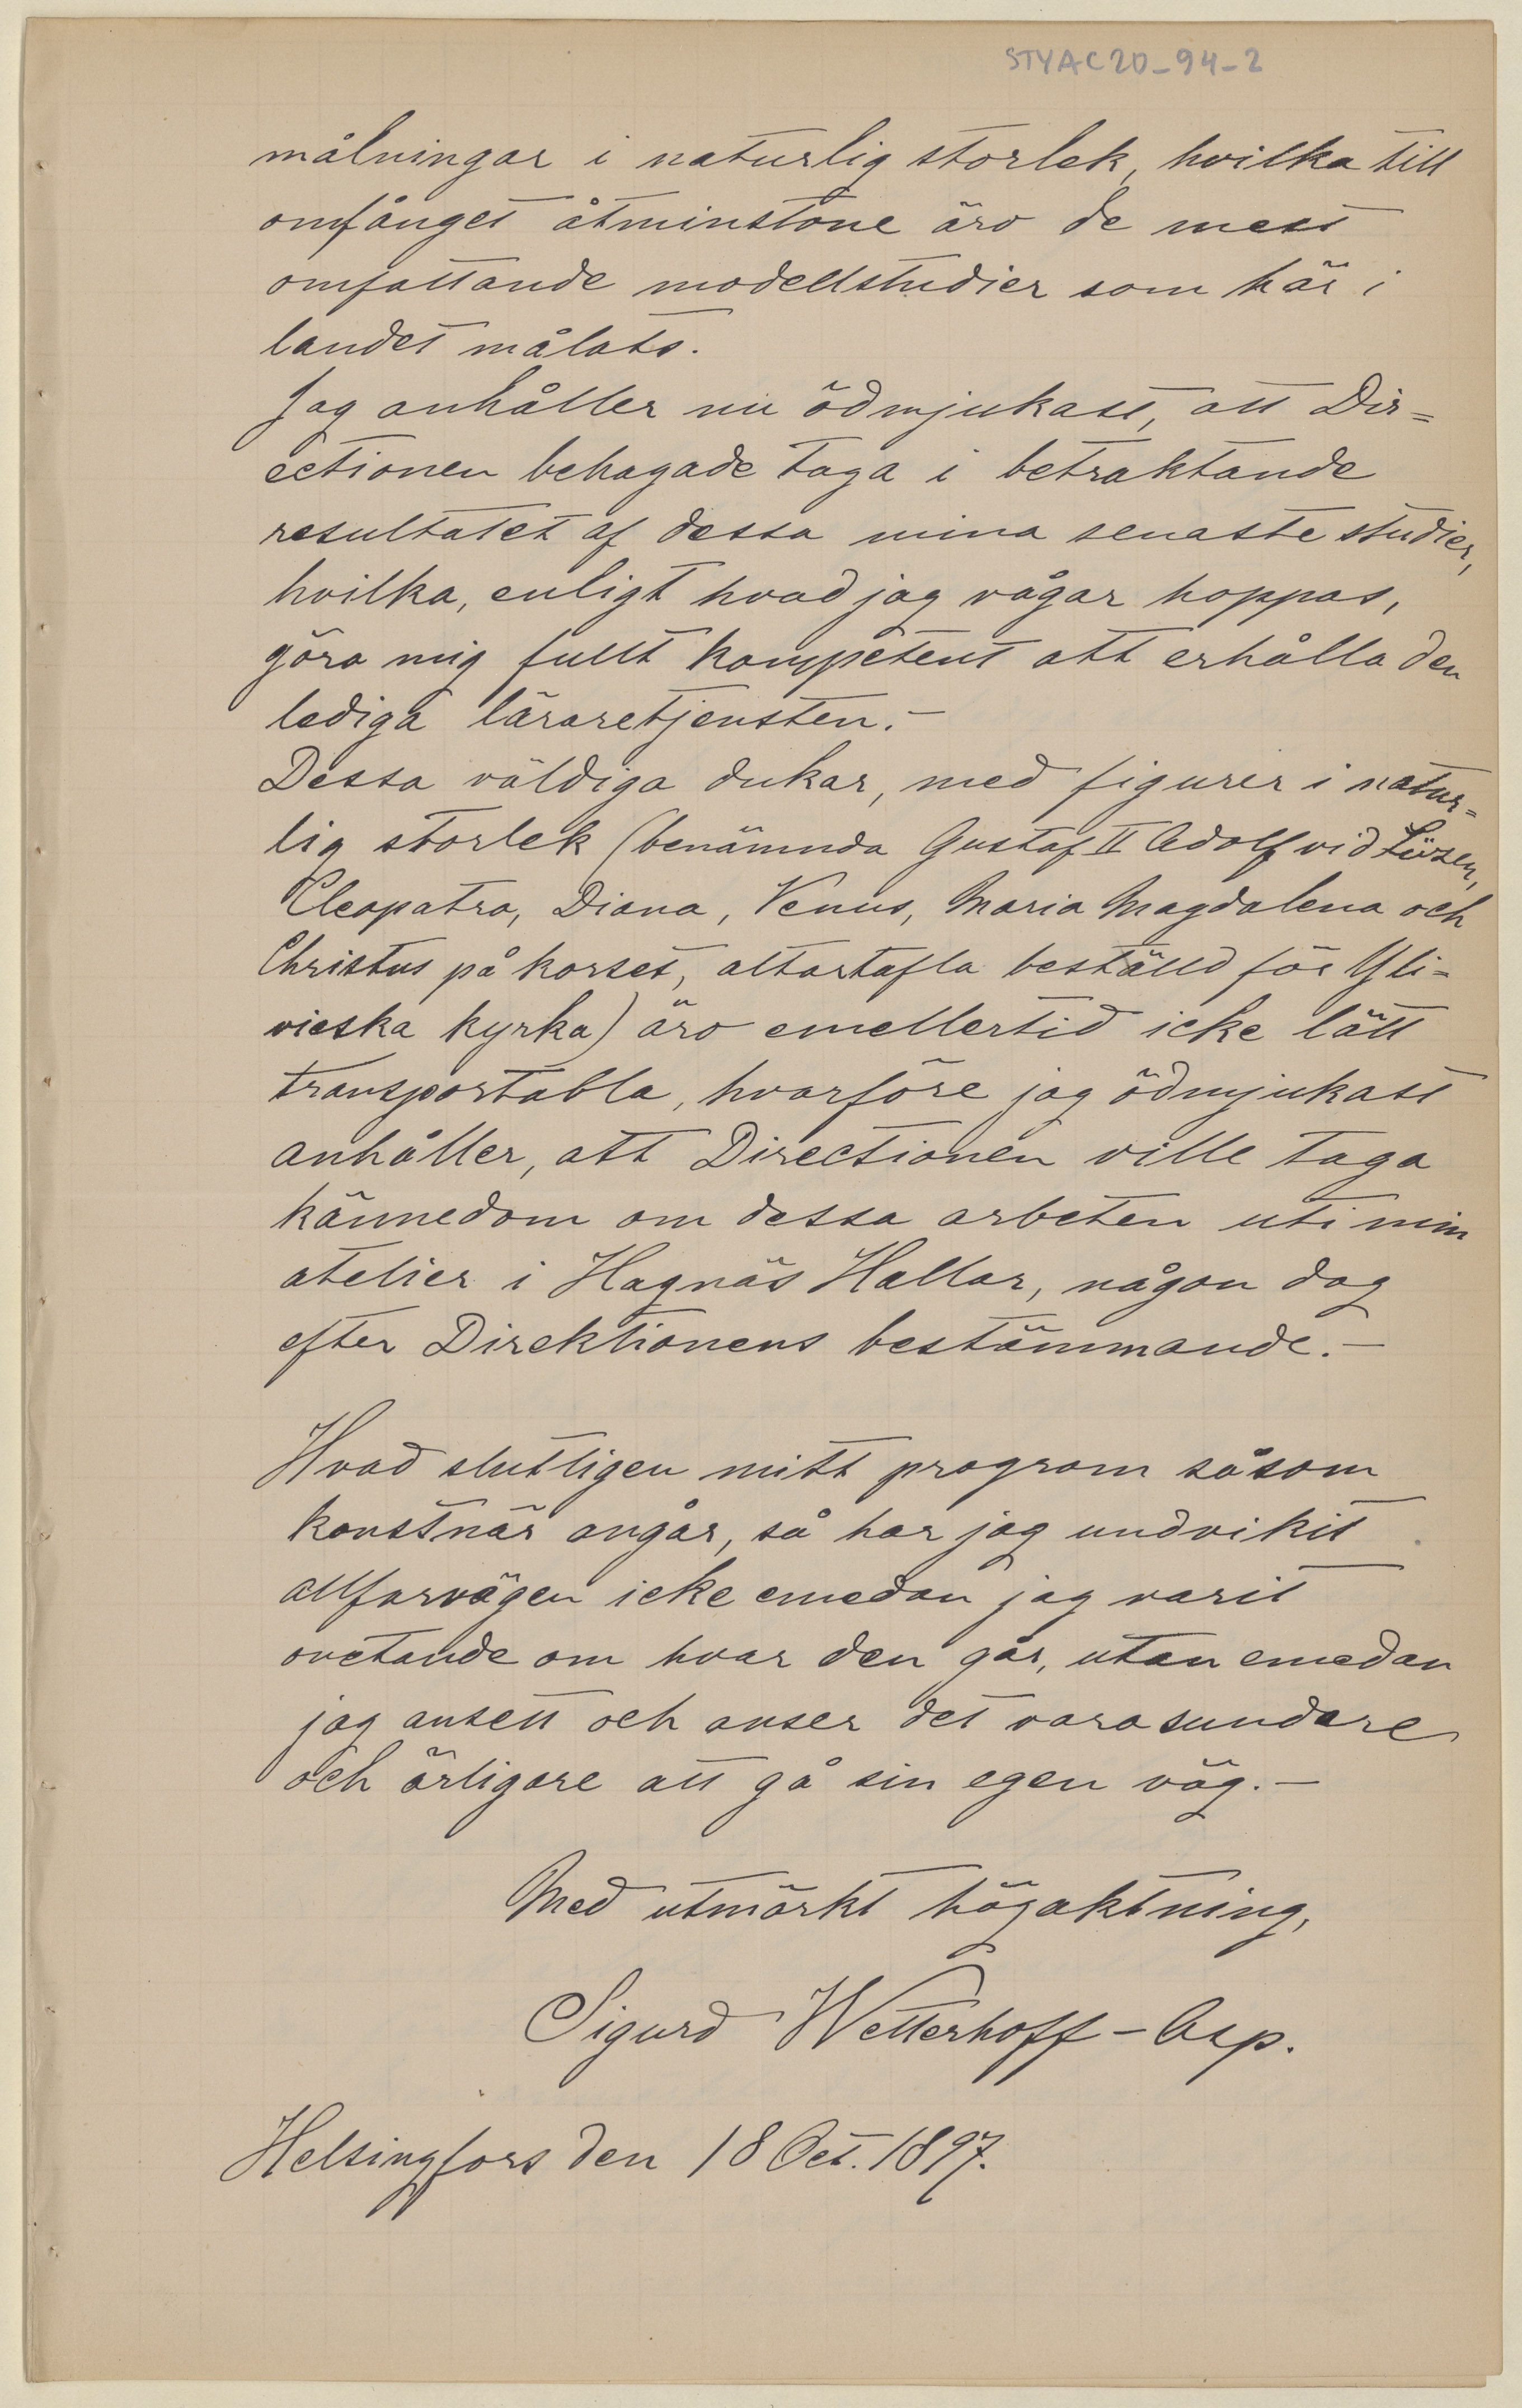 STYAC20_94_2
målningar i naturlig storlek, hvilka till
omfånget åtminstone äro de mest
omfattande modellstudier som här i
landet målats.
Jag anhåller nu ödmjukast, att Dir=
ectionen behagade taga i betraktande
resultatet af dessa mina senaste studier,
hvilka, enligt hvad jag vågar hoppas,
göra mig fullt kompetent att erhålla den
lediga läraretjensten.–
Dessa väldiga dukar, med figurer i natur=
lig storlek (benämnda Gustaf II Adolf vid Lützen,
Cleopatra, Diana, Venus, Maria Magdalena och
Christus på korset, altartafla beställd för Yli=
vieska kyrka) äro emellertid icke lätt
transportabla, hvarföre jag ödmjukast
anhåller, att Directionen ville taga
kännedom om dessa arbeten uti min
atelier i Hagnäs Hallar, någon dag
efter Direktionens bestämmande.–
Hvad slutligen mitt program såsom
konstnär angår, så har jag undvikit
allfarvägen icke emedan jag varit
ovetande om hvar den går, utan emedan
jag ansett och anser det vara sundare
och ärligare att gå sin egen väg.–
Med utmärkt högaktning,
Sigurd Wetterhoff-Asp.
Helsingfors den 18 Oct. 1897.